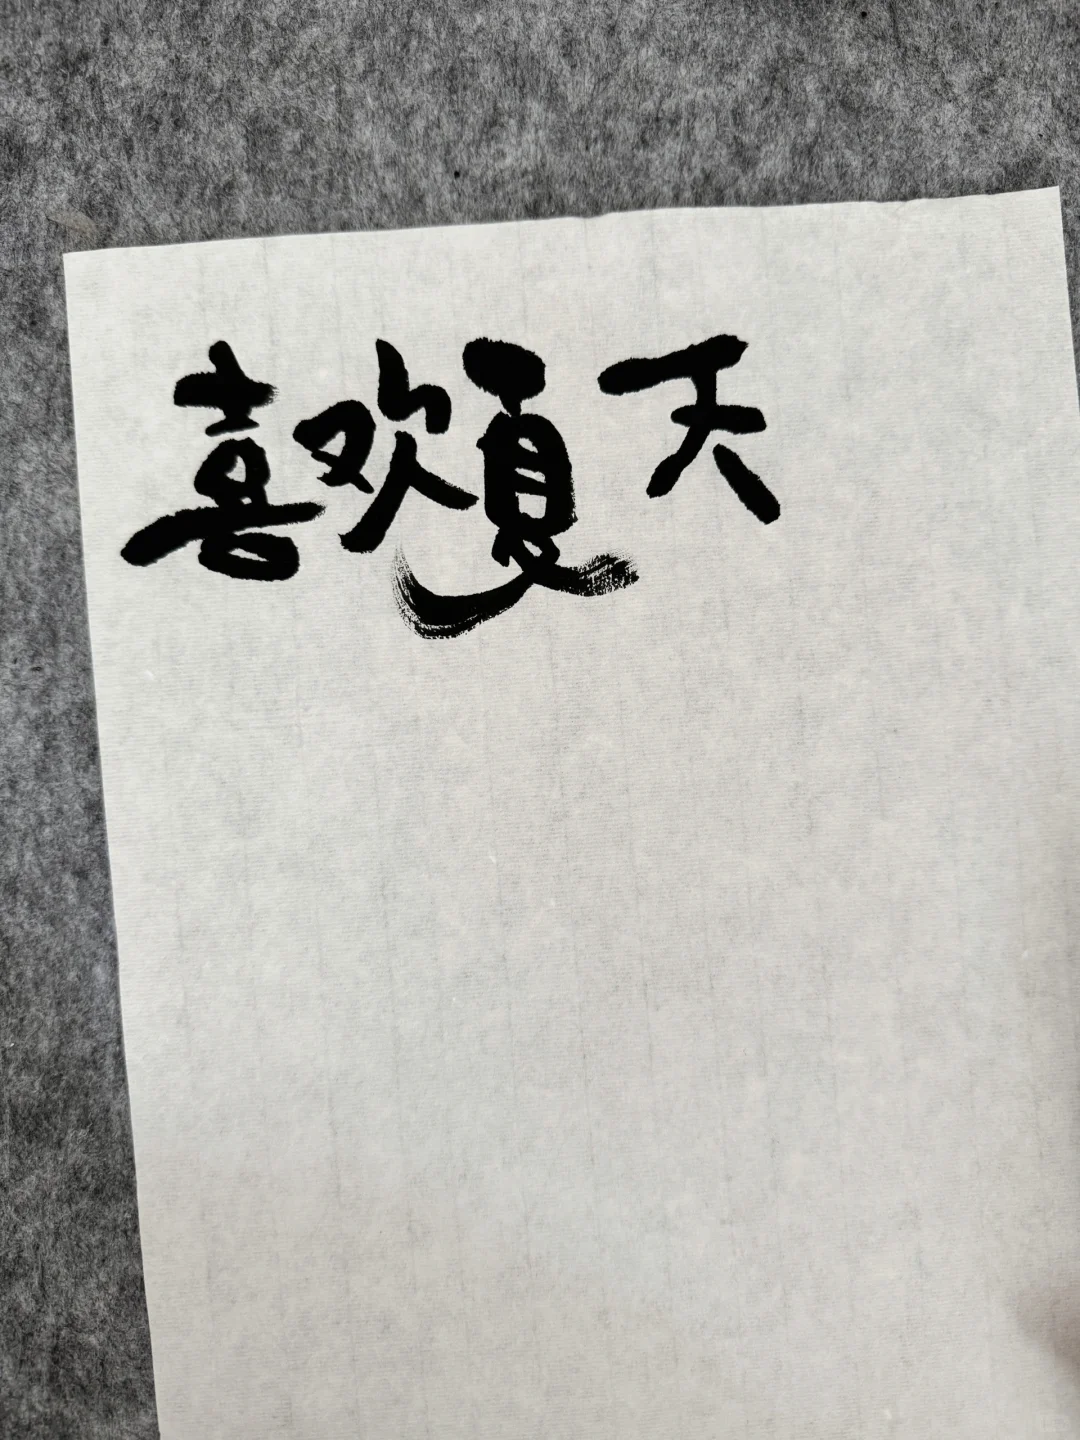 喜欢夏天